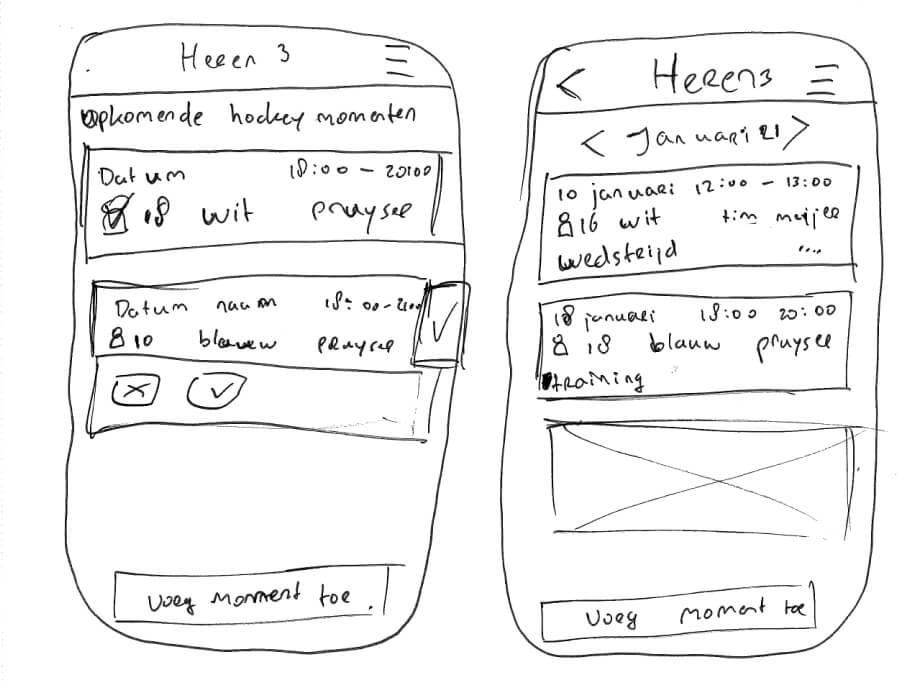 Heren 3
opkomende hockey momenten
Datum 18:00 - 20:00
18 wit pruysee
Datum naam 18:00 - 21:00
8 10 blauw pruysee
Voeg moment toe.
Heren 3
< Januari 21 >
10 januari 12:00 - 13:00
8 16 wit tim meijjee
wedsteijd ....
18 januari 18:00 20:00
8 18 blauw pruysee
training
Voeg moment toe